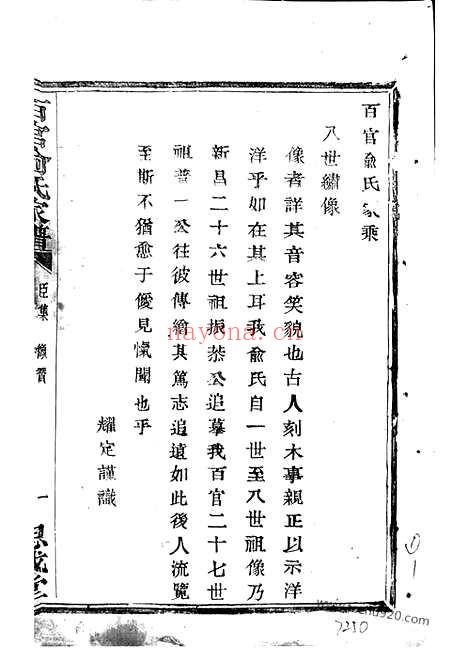 百官俞氏家乘
八世繡像
像者詳其音容笑貌也古人刻木事親正以示洋
洋乎如在其上耳我俞氏自一世至八世祖像乃
新昌二十六世祖振恭公追摹我百官二十七世
祖普一公往彼傳繪其篤志追遠如此後人流覽
至斯不猶愈于僾見愾聞也乎
耀定謹識
百官俞氏家譜
臣集
像贊
一
nayona.cn
7250